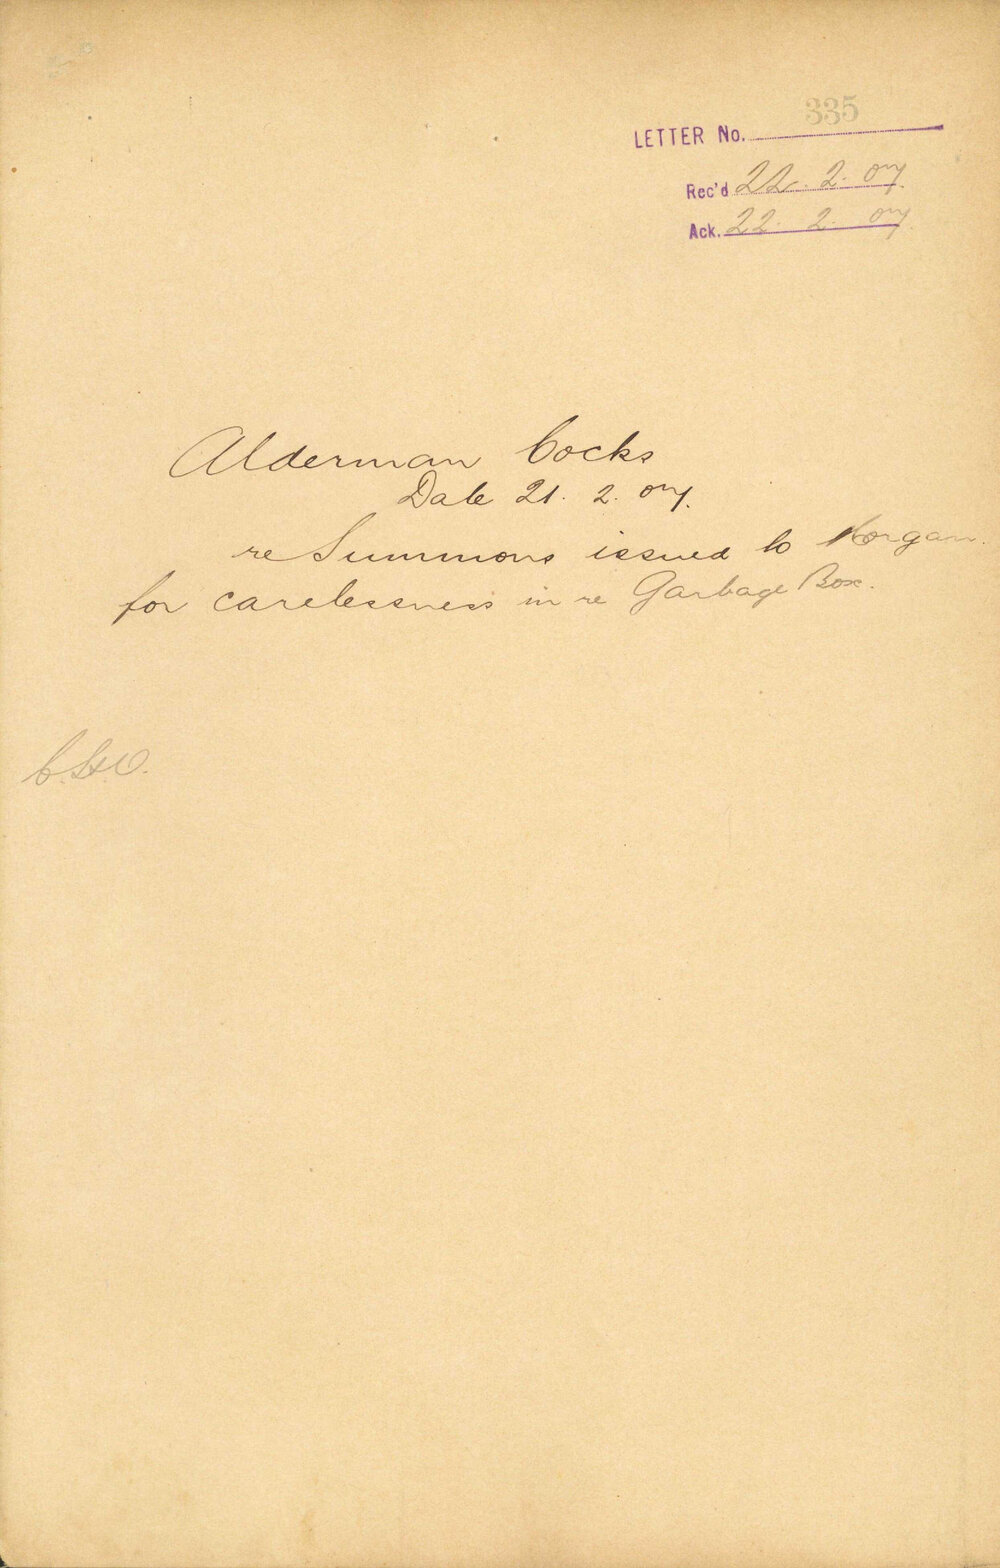 LETTER No. 335
Rec'd 22. 2. 07.
Ack. 22. 2. 07.
Alderman Cocks
Date 21. 2. 07.
re Summons issued to Morgan.
for carelessness in re Garbage Box.